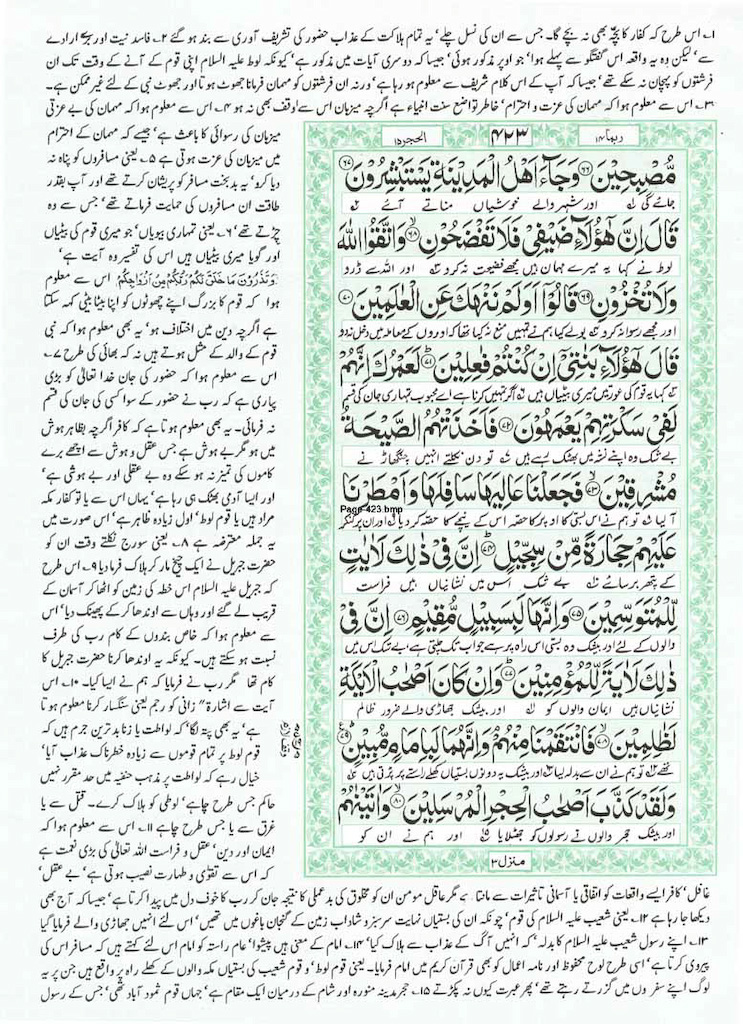 ۱۔ اس طرح کہ کفار کا بچہ بھی نہ بچے گا۔ جس سے ان کی نسل چلے' یہ تمام ہلاکت کے عذاب حضور کی تشریف آوری سے بند ہو گئے ۲۔ فاسد نیت اور برے ارادے
سے' لیکن وہ یہ واقعہ اس گفتگو سے پہلے ہوا' جو اوپر مذکور ہوئی' جیسا کہ دوسری آیات میں مذکور ہے' کیونکہ لوط علیہ السلام اپنی قوم کے آنے کے وقت تک ان
فرشتوں کو پہچان نہ سکے تھے' جیسا کہ آپ کے اس کلام شریف سے معلوم ہو رہا ہے' ورنہ ان فرشتوں کو مہمان فرمانا جھوٹ ہوتا اور جھوٹ نبی کے لئے غیر ممکن ہے۔
۳۔ اس سے معلوم ہوا کہ مہمان کی عزت و احترام' خاطر تواضع سنت انبیاء ہے اگرچہ میزبان اس سے واقف بھی نہ ہو ۴۔ اس سے معلوم ہوا کہ مہمان کی بے عزتی
ربما ۱۴ ۴۲۳ الحجر ۱۵
مُّصْبِحِيْنَ ﴿۶۶﴾ وَجَآءَ اَهْلُ الْمَدِيْنَةِ يَسْتَبْشِرُوْنَ ﴿۶۷﴾
جائے گی اور شہر والے خوشیاں مناتے آئے
قَالَ اِنَّ هٰٓؤُلَآءِ ضَيْفِيْ فَلَا تَفْضَحُوْنِ ﴿۶۸﴾ وَاتَّقُوا اللّٰهَ
لوط نے کہا یہ میرے مہمان ہیں مجھے فضیحت نہ کرو اور اللہ سے ڈرو
وَلَا تُخْزُوْنِ ﴿۶۹﴾ قَالُوْٓا اَوَلَمْ نَنْهَكَ عَنِ الْعٰلَمِيْنَ ﴿۷۰﴾
اور مجھے رسوا نہ کرو بولے کیا ہم نے تمہیں منع نہ کیا تھا کہ اوروں کے معاملہ میں دخل نہ دو
قَالَ هٰٓؤُلَآءِ بَنٰتِيْٓ اِنْ كُنْتُمْ فٰعِلِيْنَ ﴿۷۱﴾ لَعَمْرُكَ اِنَّهُمْ
کہا یہ قوم کی عورتیں میری بیٹیاں ہیں اگر تمہیں کرنا ہے اے محبوب تمہاری جان کی قسم
لَفِيْ سَكْرَتِهِمْ يَعْمَهُوْنَ ﴿۷۲﴾ فَاَخَذَتْهُمُ الصَّيْحَةُ
بے شک وہ اپنے نشہ میں بھٹک رہے ہیں تو دن نکلتے انہیں چنگھاڑ نے
مُشْرِقِيْنَ ﴿۷۳﴾ فَجَعَلْنَا عَالِيَهَا سَافِلَهَا وَاَمْطَرْنَا
آ لیا تو ہم نے اس بستی کا اوپر کا حصہ اس کے نیچے کا حصہ کر دیا اور ان پر کنکر
Page-423.bmp
عَلَيْهِمْ حِجَارَةً مِّنْ سِجِّيْلٍ ﴿۷۴﴾ اِنَّ فِيْ ذٰلِكَ لَاٰيٰتٍ
کے پتھر برسائے بے شک اس میں نشانیاں ہیں فراست
لِّلْمُتَوَسِّمِيْنَ ﴿۷۵﴾ وَاِنَّهَا لَبِسَبِيْلٍ مُّقِيْمٍ ﴿۷۶﴾ اِنَّ فِيْ
والوں کے لئے اور بیشک وہ بستی اس راہ پر ہے جو اب تک چلتی ہے بے شک اس میں
ذٰلِكَ لَاٰيَةً لِّلْمُؤْمِنِيْنَ ﴿۷۷﴾ وَاِنْ كَانَ اَصْحٰبُ الْاَيْكَةِ
نشانیاں ہیں ایمان والوں کو اور بیشک جھاڑی والے ضرور ظالم
لَظٰلِمِيْنَ ﴿۷۸﴾ فَانْتَقَمْنَا مِنْهُمْ وَاِنَّهُمَا لَبِاِمَامٍ مُّبِيْنٍ ﴿۷۹﴾
تھے تو ہم نے ان سے بدلہ لیا اور بیشک یہ دونوں بستیاں کھلے راستے پر پڑتی ہیں
وَلَقَدْ كَذَّبَ اَصْحٰبُ الْحِجْرِ الْمُرْسَلِيْنَ ﴿۸۰﴾ وَاٰتَيْنٰهُمْ
اور بیشک حجر والوں نے رسولوں کو جھٹلایا اور ہم نے ان کو
منزل ۳
میزبان کی رسوائی کا باعث ہے' جیسے کہ مہمان کے احترام
میں میزبان کی عزت ہوتی ہے ۵۔ یعنی مسافروں کو پناہ نہ
دیا کرو' یہ بدبخت مسافر کو پریشان کرتے تھے اور آپ بقدر
طاقت ان مسافروں کی حمایت فرماتے تھے' جس سے وہ
چڑتے تھے ۶۔ یعنی تمہاری بیویاں' جو میری قوم کی بیٹیاں
اور گویا میری بیٹیاں ہیں اس کی تفسیر وہ آیت ہے'
وَتَذَرُوْنَ مَا خَلَقَ لَكُمْ رَبُّكُمْ مِنْ اَزْوَاجِكُمْ اس سے معلوم
ہوا کہ قوم کا بزرگ اپنے چھوٹوں کو اپنا بیٹا بیٹی کہہ سکتا
ہے اگرچہ دین میں اختلاف ہو' یہ بھی معلوم ہوا کہ نبی
قوم کے والد کے مثل ہوتے ہیں نہ کہ بھائی کی طرح ۷۔
اس سے معلوم ہوا کہ حضور کی جان خدا تعالیٰ کو بڑی
پیاری ہے کہ رب نے حضور کے سوا کسی کی جان کی قسم
نہ فرمائی۔ یہ بھی معلوم ہوتا ہے کہ کافر اگرچہ بظاہر ہوش
میں ہو مگر بے ہوش ہے جس عقل و ہوش سے اچھے برے
کاموں کی تمیز نہ ہو سکے وہ بے عقلی اور بے ہوشی ہے'
اور ایسا آدمی بھٹک ہی رہا ہے' یہاں اس سے یا تو کفار مکہ
مراد ہیں یا قوم لوط' اول زیادہ ظاہر ہے' اس صورت میں
یہ جملہ معترضہ ہے ۸۔ یعنی سورج نکلتے وقت ان کو
حضرت جبریل نے ایک چیخ مار کر ہلاک فرما دیا ۹۔ اس طرح
کہ جبریل علیہ السلام اس خطہ کی زمین کو اٹھا کر آسمان کے
قریب لے گئے اور وہاں سے اوندھا کر کے پھینک دیا' اس
سے معلوم ہوا کہ خاص بندوں کے کام رب کی طرف
نسبت ہو سکتے ہیں۔ کیونکہ یہ اوندھا کرنا حضرت جبریل کا
کام تھا مگر رب نے فرمایا کہ ہم نے ایسا کیا۔ ۱۰۔ اس
آیت سے اشارۃ" زانی کو رجم یعنی سنگسار کرنا معلوم ہوتا
ہے' یہ بھی پتہ لگا' کہ لواطت یا زنا بدترین جرم ہیں کہ
قوم لوط پر تمام قوموں سے زیادہ خطرناک عذاب آیا'
خیال رہے کہ لواطت پر مذہب حنفیہ میں حد مقرر نہیں
حاکم جس طرح چاہے' لوطی کو ہلاک کرے۔ قتل سے یا
غرق سے یا جس طرح چاہے ۱۱۔ اس سے معلوم ہوا کہ
ایمان اور دین' عقل و فراست اللہ تعالیٰ کی بڑی نعمت ہے
کہ اس سے تقویٰ و طہارت نصیب ہوتی ہے' بے عقل'
غافل' کافر ایسے واقعات کو اتفاقی یا آسمانی تاثیرات سے مانتا ہے مگر عاقل مومن ان کو مخلوق کی بدعملی کا نتیجہ جان کر رب کا خوف دل میں پیدا کرتا ہے' جیسا کہ آج بھی
دیکھا جا رہا ہے ۱۲۔ یعنی شعیب علیہ السلام کی قوم' چونکہ ان کی بستیاں نہایت سرسبز و شاداب زمین کے گنجان باغوں میں تھیں' اس لئے انہیں جھاڑی والے فرمایا گیا
۱۳۔ اپنے رسول شعیب علیہ السلام کا بدلہ' کہ انہیں آگ کے عذاب سے ہلاک کیا' ۱۴۔ امام کے معنی ہیں پیشوا' عام راستہ کو امام اس لئے کہتے ہیں کہ مسافر اس کی
پیروی کرتا ہے' اسی طرح لوح محفوظ اور نامہ اعمال کو بھی قرآن کریم میں امام فرمایا۔ یعنی قوم لوط' و قوم شعیب کی بستیاں مکہ والوں کے کھلے راہ پر واقع ہیں جن پر یہ
لوگ اپنے سفروں میں گزرتے رہتے تھے' پھر عبرت کیوں نہ پکڑتے ۱۵۔ حجر مدینہ منورہ اور شام کے درمیان ایک مقام ہے' جہاں قوم ثمود آباد تھی' جس کے رسول